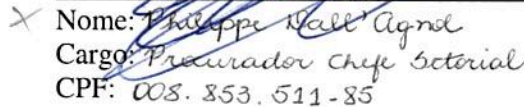 Nome: Philippe Dall' Agnol
Cargo: Procurador Chefe Setorial
CPF: 008.853.511-85